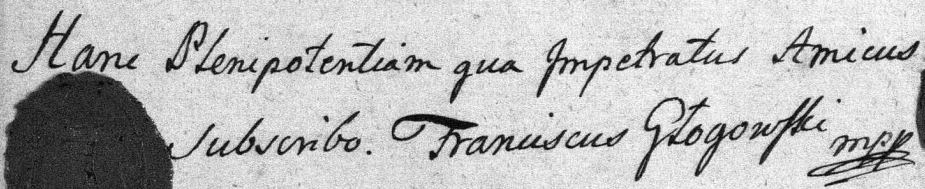 Hanc Plenipotentiam qua Impetratus Amicus
subscribo. Franciscus Głogowski mpp